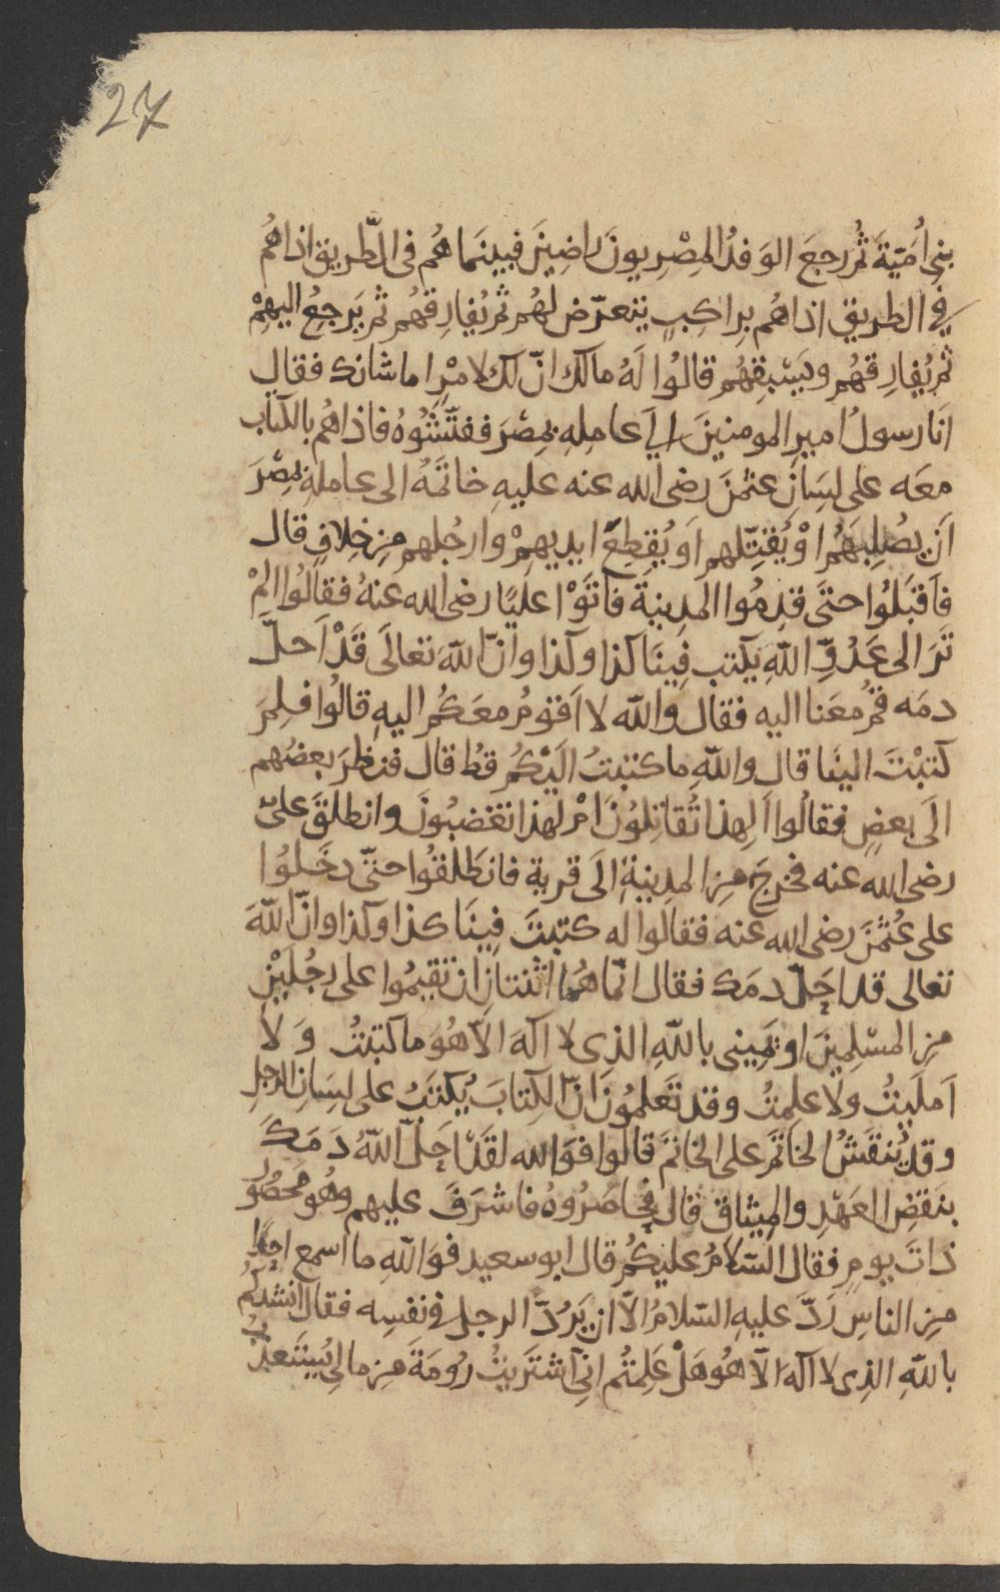 27
بنى اُمَيّةَ ثُم رجعَ الوَفدُ المصْرِيونَ راضِينَ فبينَما هُم فى الطّريق اذا هُم
فى الطريق اذا هُم بِراكِبٍ يتعرّض لهُم ثم يُفارِقهُم ثم يَرجعُ اليهِمْ
ثم يُفارِقهُم ويَسْبقِهُم قالُوا لَهُ مالك انّ لك لامْرا ما شانك فقال
انَا رسولُ اميرِ المومنينَ الى عامِلهِ بمِصْرَ ففتّشُوهُ فاذا هُم بالكتاب
معَه على لسَانِ عثمنَ رضى الله عنه عليهِ خاتَمُهُ الى عاملهِ بمِصْرَ
اَن يصُلِبَهُم اوْ يُقَتِّلهم اَو يُقطِعَ ايديهِمْ وارجُلهم مِن خِلافٍ قال
فاَقبَلُوا حتىَ قدِمُوا المدِينةَ فاَتَوْا علَيًا رضى الله عنهُ فقالُوا المْ
تَرَ الى عَدُوِّ اللهِ يكتب فِينَا كذا وكذا وانّ اللهَ تعالَى قَدْ اَحلّ
دمَه قُم معَنا اليه فقال والله لا اَقوُم معَكُم اليهِ قالُوا فلِمَ
كتبْتَ الينَا قال واللهِ ما كتبتُ اليْكُم قطُ قال فنظرَ بعضُهم
الَى بعضٍ فقالُوا اَلِهذا تُقاتِلُونَ امْ لهذا تغضبُونَ وانطلقَ علىّ
رضى الله عنه فخرجَ مِن المدِينةِ الَى قرية فانطَلقُوا حتّى دخَلُوا
على عُثمنَ رضى الله عنه فقالُوا له كتبتَ فِينَا كذا وكذا وانّ اللهَ
تعالى قد احَلّ دمَك فقال انّما هُما اثنتانِ ان تقيمُوا على رجُلَيْنِ
مِن المسْلِمينَ او يَمِينى باللهِ الذِى لا الَه الاّ هُوَ ما كتبتُ وَ لاَ
اَملَيتُ ولا علِمتُ وقد تعَلمُونَ انّ الكِتابَ يُكتَبُ على لِسَانِ الرجلِ
وقد يُنقَشُ الخاتَم على الخاتَم قالُوا فوَالله لقَدْ احَلّ اللهُ دَمَكَ
بنقضِ العَهْدِ والمِيثاقِ قال فحَاصَرُوهُ فاشرَفَ عليهم وهُو محَصُور
ذاتَ يومٍ فقال السّلامُ عليكُم قال ابو سعيد فوَاللهِ ما اسمع احَدًا
مِن الناسِ رَدّ عليهِ السّلامُ الاّ ان يَرُدّ الرجل فى نفسِه فقال انشدكُم
باللهِ الذِى لا الَه الاّ هُو هَلْ عَلِمتُم انِّى اشتَريتُ رُومَةَ مِن مالِى يُستَعذَبُ